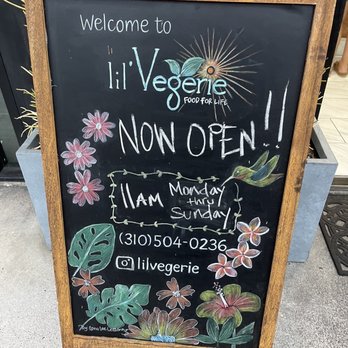 Welcome to
lil' Vegerie
FOOD FOR LIFE
NOW OPEN!!
11AM Monday
thru
Sunday
(310)504-0236
lilvegerie